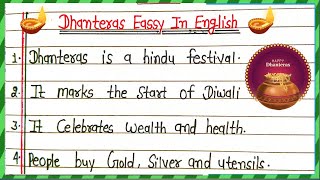 Dhanteras Eassy In English
1. Dhanteras is a hindu festival.
2. It marks the start of Diwali
HAPPY
Dhanteras
3. It Celebrates wealth and health.
4. People buy Gold, Silver and utensils.